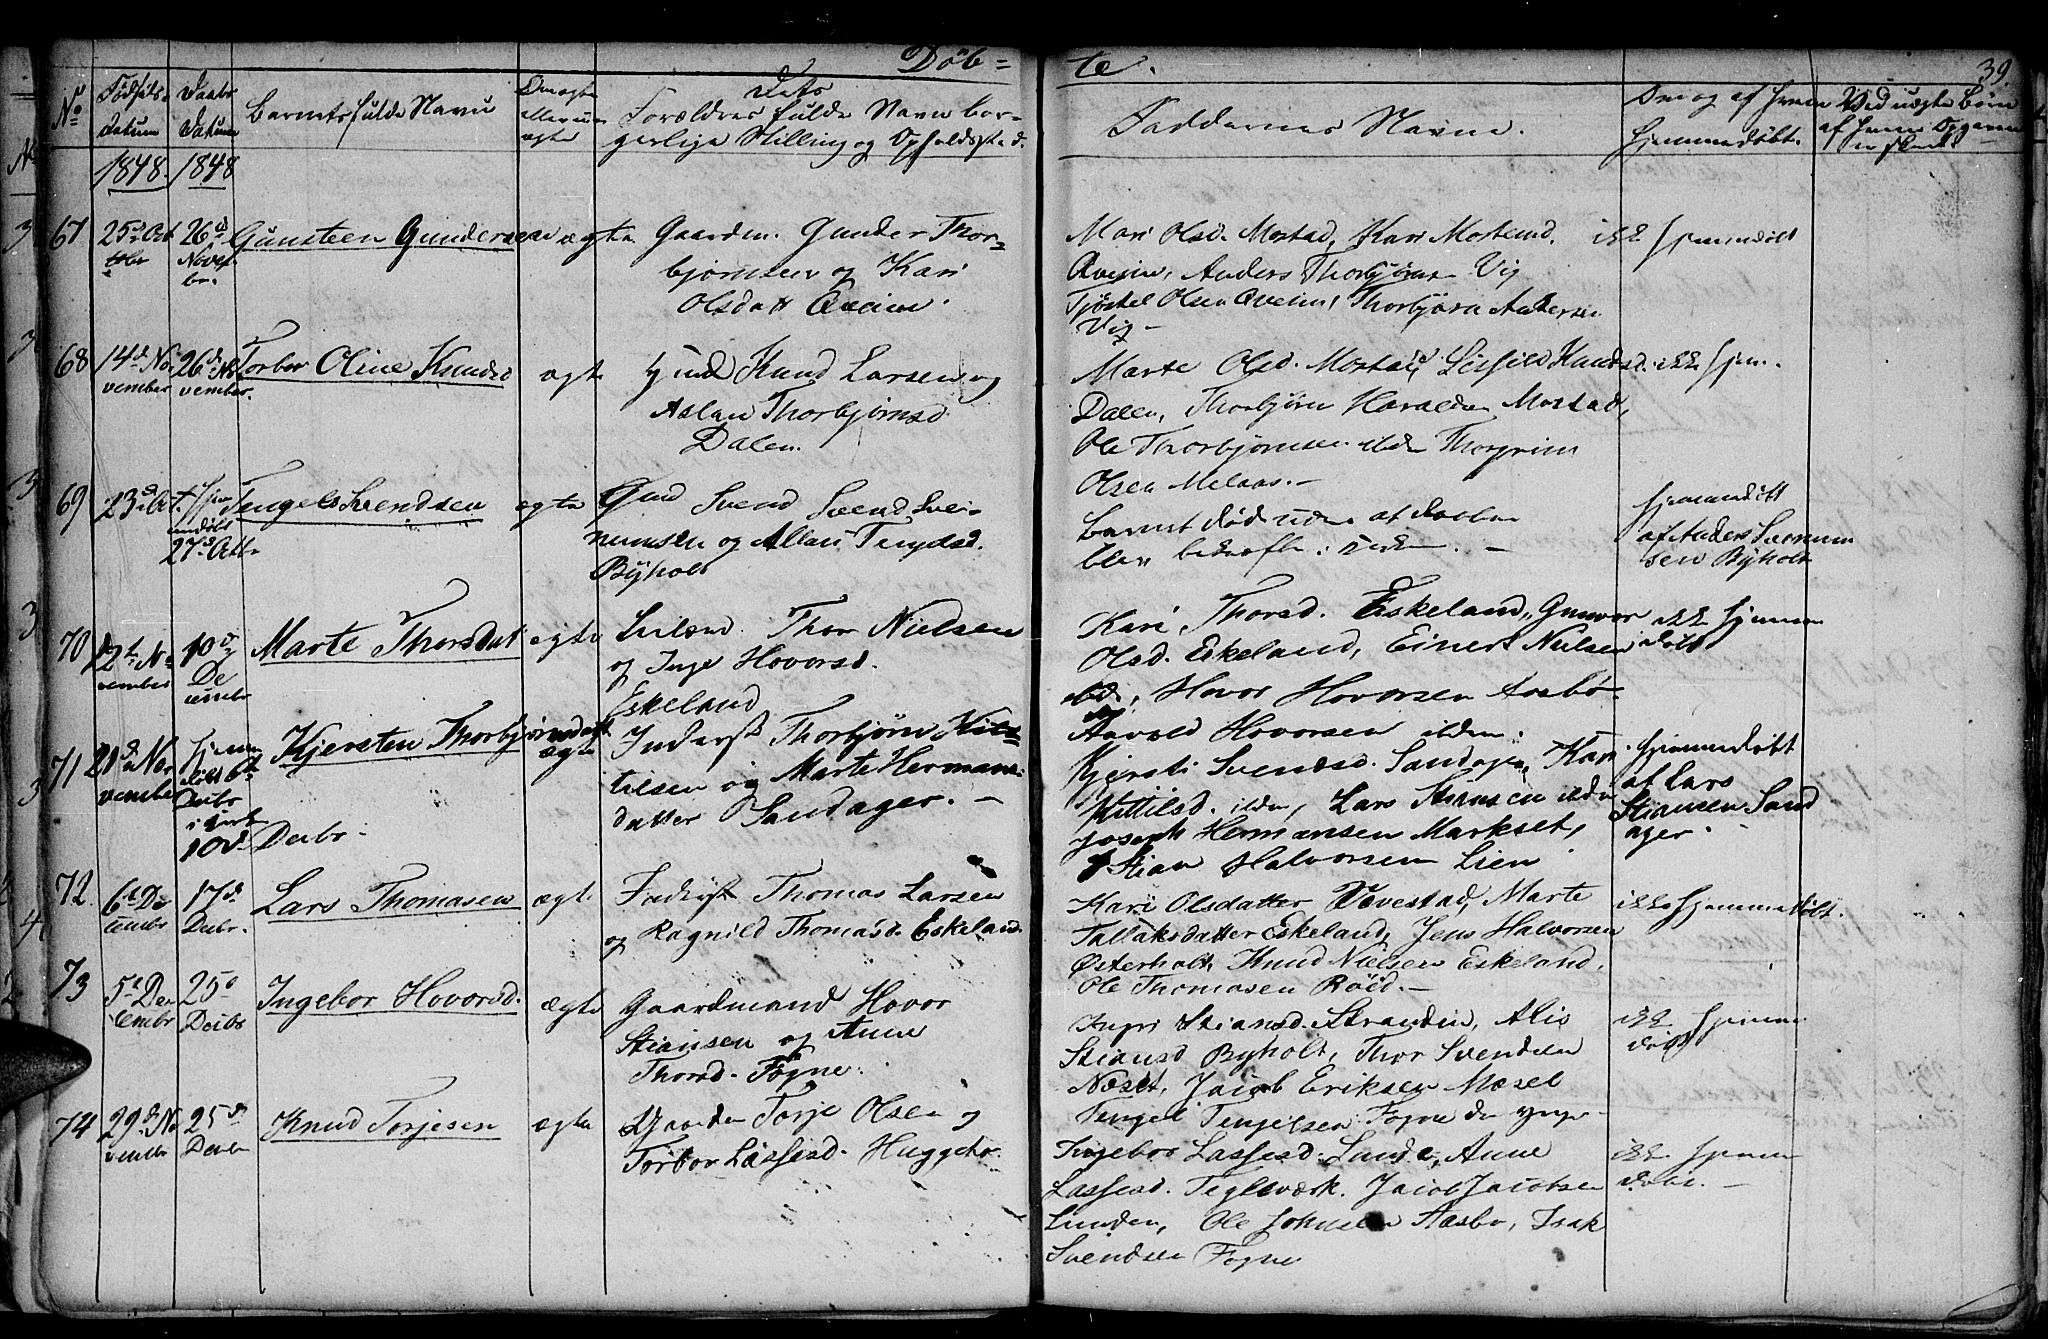 Döb= te.
39
No
Fødsels-
datum
Daabs
Datum
Barnets fulde Navn
Om ægte
eller u-
ægte
Dets
Forældres fulde Navn bor-
gerlige Stilling og Opholdssted.
Faddernes Navne.
hjemmedøbt.
Ved uægte Børn
1848. 1848
67
25de Oct
tober
26d
Novem
br.
Gunsteen Gundersen
ægte
Gaardm. Gunder Thor-
bjørnsen og Kari
Olsdatt Aveim.
Mari Olsd. Mostad, Kari
Aveim, Anders Thorbjørns Vig
Tjøstel Olsen Aveim, Thorbjørn Andersen
Vig -
ikke hjemmedøbt
68
14d No
vember
26d No
vember.
Torbor Oline Knudsd
ægte
Knud Larsen og
Aslau Thorbjørnsd
Dalen.
Marte Olsd. Mostad, Knudsd.
Dalen, Thorbjørn Haralds Mostad,
Ole Thorbjørnsen ilden Thorgrim
Olsen Melaas. -
ikke hjem.
69
23d Oct.
hjem
medøbt
27d Octb
Tengels Svendsen
ægte
Svend Svend Svei-
numsen og Allau Tengelsd.
Byholt
Barnet død uden at
blev
hjemmedøbt
af Anders Sveinum
sen Byholt
70
12te No
vember
10d
De
cembr
Marte Thorsdat
ægte
Thor Nielsen
og Inge Hovorsd.
Eskeland
Kari Thorsd. Eskeland, Gunvor
Olsd. Eskeland, Einert Nielsen
ibd, Hovor Hovorsen Aasbø
Aavold Hovorsen ilden.
ikke hjemme
døbt
71
21d No
vember
hjem
døbt 6t
Decbr
i kirk
10d Decbr.
Kjersten Thorbjørnsdatt
ægte
Inderst Thorbjørn Kit-
tilsen og Marte Hermans-
datter Sandager. -
Kjersti Svendsd. Sandager, Kari
Kittilsd. ilden, Lars Stiansen ilden
Joseph Hermansen Markset,
Stian Halvorsen Lien
hjemmedøbt
af Lars
Stiansen Sand
ager.
72
6t De
cembr
17d
Decbr.
Lars Thomasen
ægte
Inderst Thomas Larsen
og Ragnild Thomasd. Eskeland.
Kari Olsdatter Vevestad, Marte
Tallaksdatter Eskeland, Jens Halvorsen
Østerholt, Knud Nielsen Eskeland,
Ole Thomasen Röed. -
ikke hjemmedøbt.
73
5t De
cembr
25d
Decbr
Ingebor Hovorsd.
ægte
Gaardmand Hovor
Stiansen og Anne
Thorsd. Fogne.
Ingri Stiansd. Stranden, Alis
Stiansd Byholt, Thor Svendsen
Næset, Jacob Eriksen Mæsel
Tengel Tengelsen Fogne den ynge.
ikke hjemme
døbt
74
29d No
vembr
25d
Decbr
Knud Torjesen
ægte
Gaardm Torje Olsen og
Torbor Lassesd. Huggeto.
Ingebor Lassesd. Sunde, Anne
Lassesd. Teglsværk. Jacob Jacobsen
Lunden, Ole Johnsen Aasbo, Isak
Svendsen Fogne
ikke hjemme
døbt. -